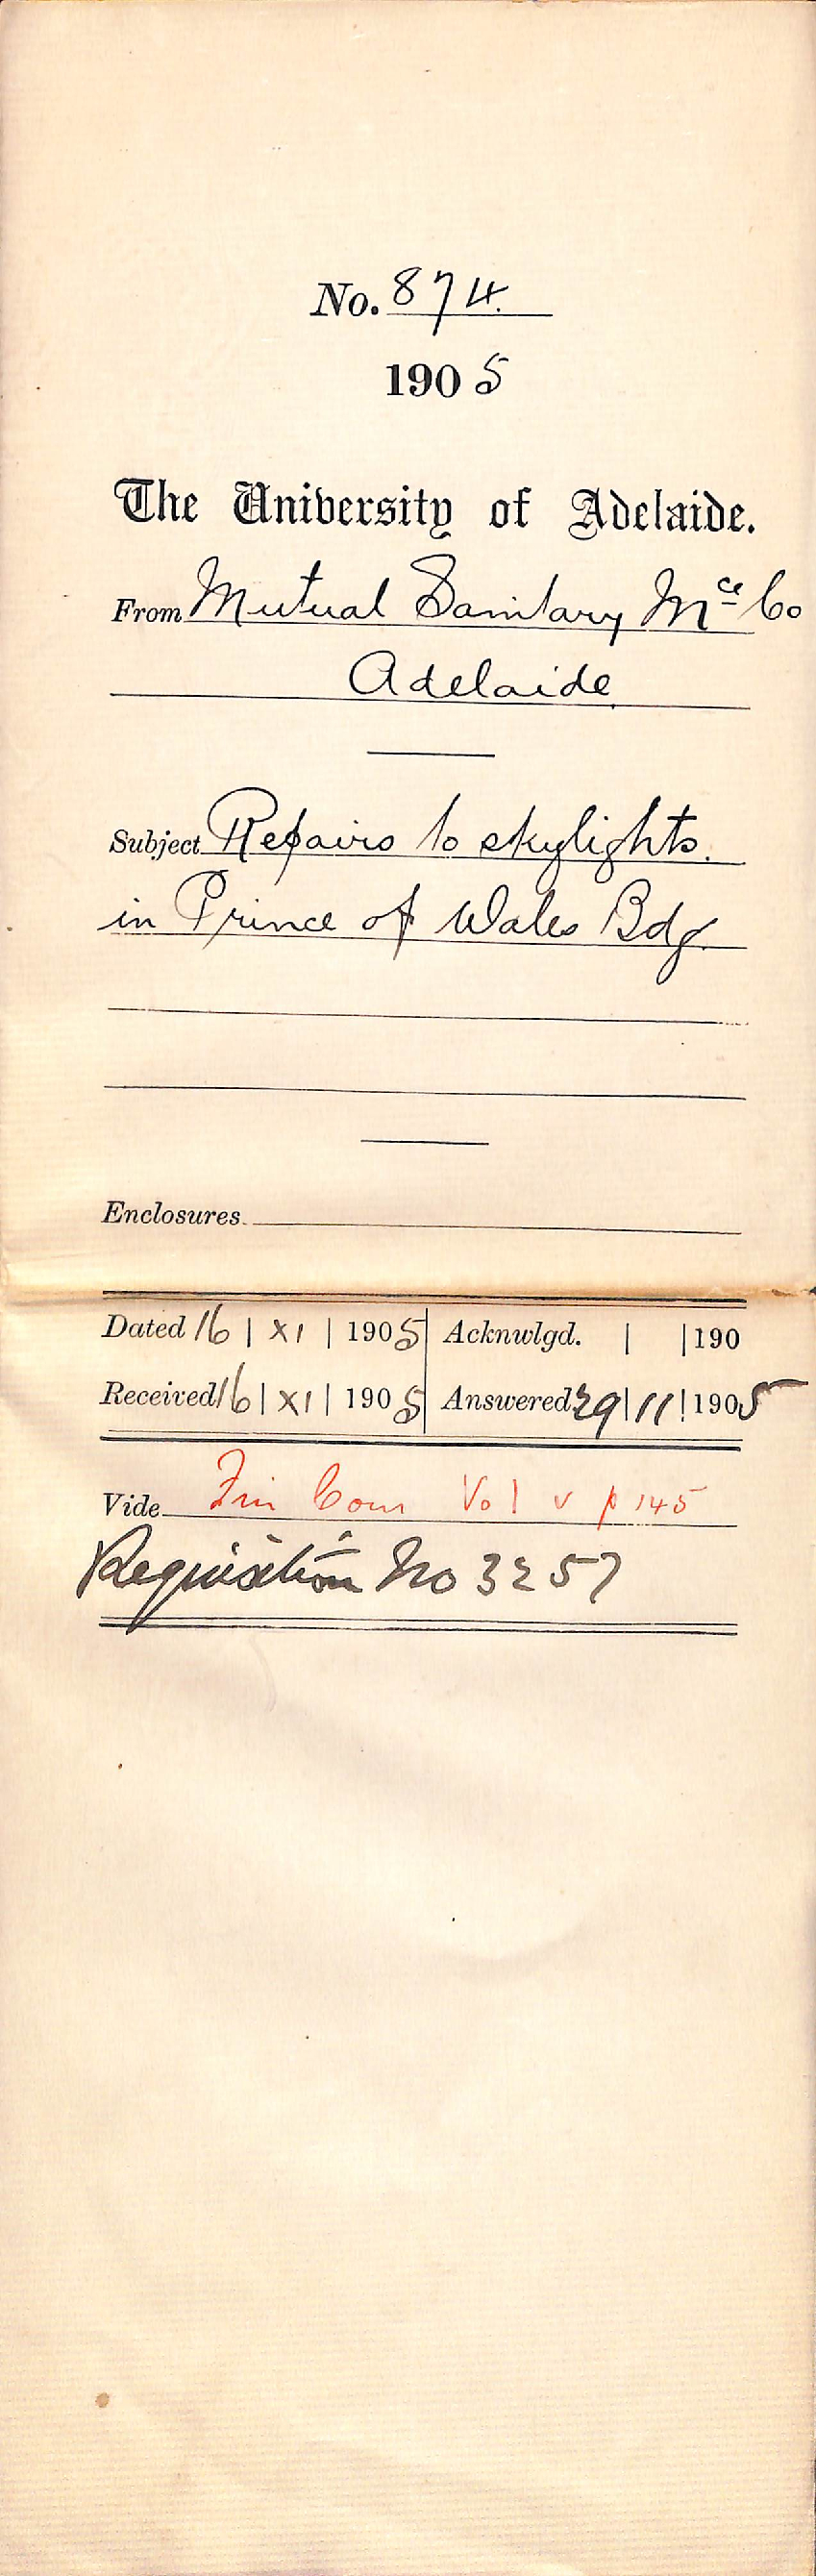 No. 874.
1905
The University of Adelaide.
From Mutual Sanitary Mce Co
Adelaide
Subject Repairs to skylights.
in Prince of Wales Bdg.
Enclosures
Dated 16 | XI | 1905 Acknwlgd. | | 190
Received 16 | XI | 1905 Answered 29 | 11 | 1905
Vide Fin Com Vol V p 145
Requisition No 3257